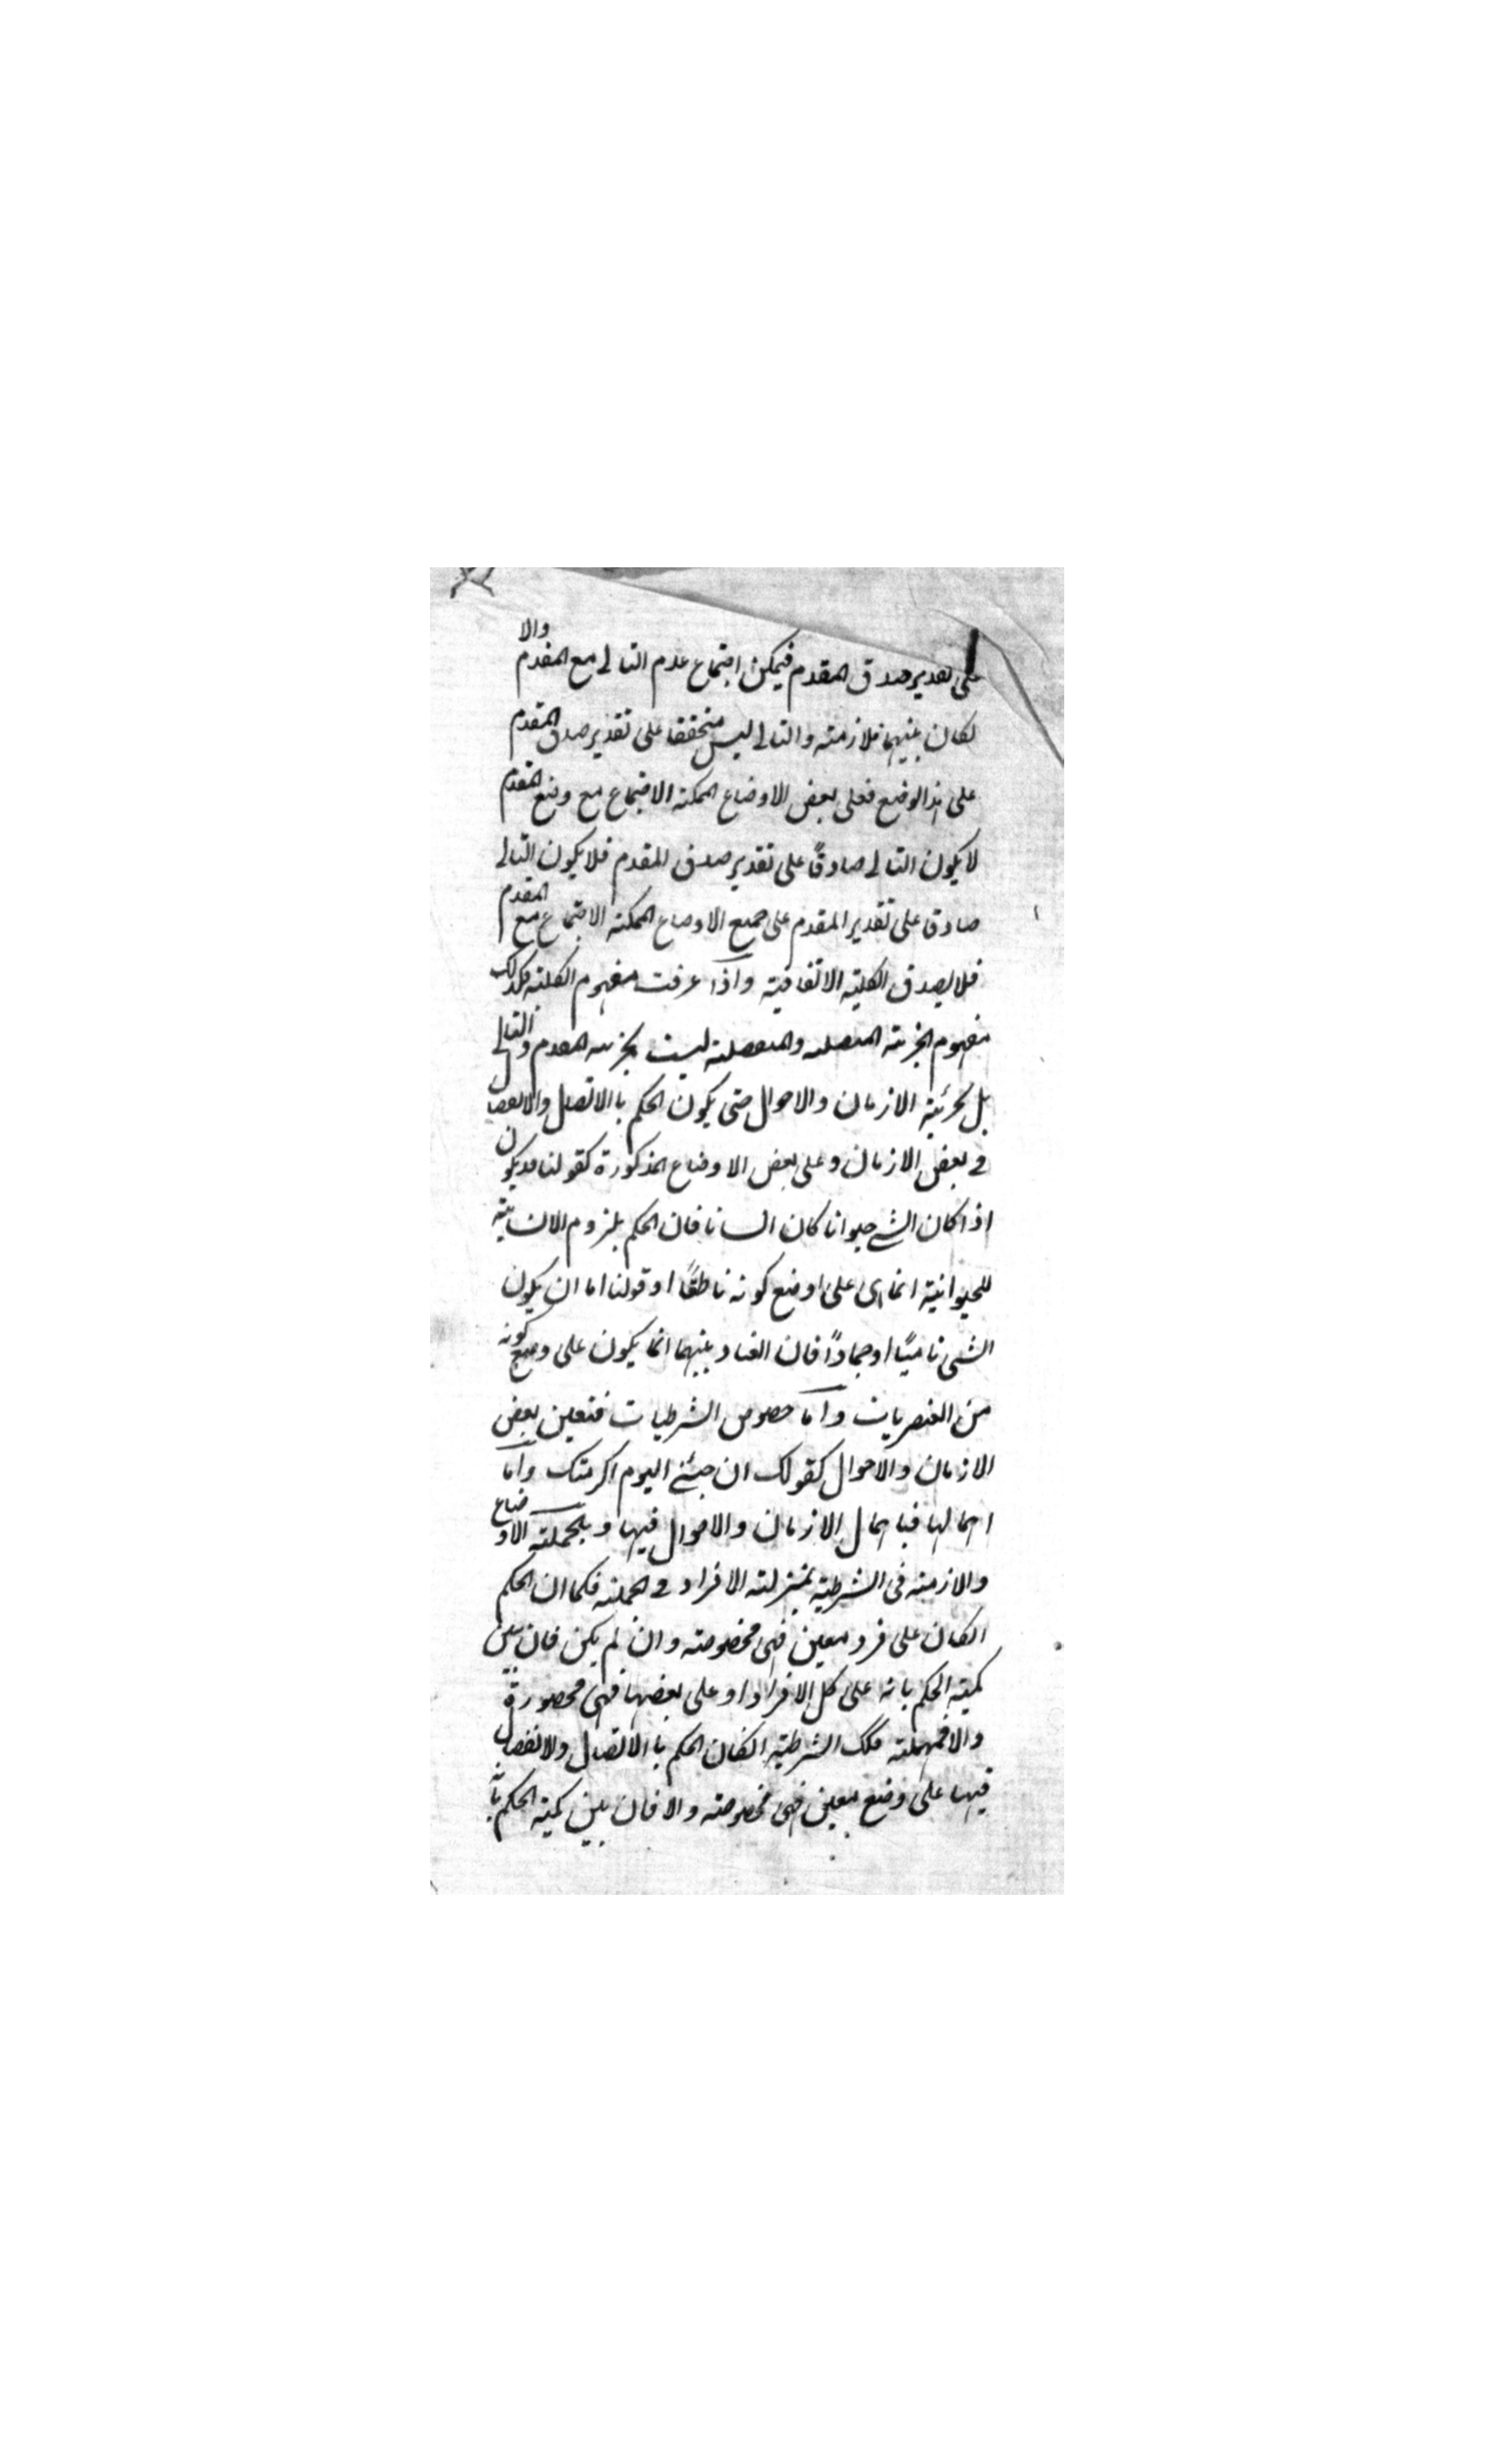 على تقدير صدق المقدم فيمكن اجتماع عدم التالى مع المقدم والا
لكان بينهما ملازمته والتالى ليس متحققا على تقدير صدق المقدم
على هذا الوضع فعلى بعض الاوضاع الممكنة الاجتماع مع وضع المقدم
لا يكون التالى صادقًا على تقدير صدق المقدم فلا يكون التالى
صادقا على تقدير المقدم على جميع الاوضاع الممكنة الاجتماع مع المقدم
فلا يصدق الكلية الاتفاقية واذا عرفت مفهوم الكلية فكذلك
مفهوم الجزئية المتصلة والمنفصلة ليست بجزئية المقدم والتالى
بل بجزئية الازمان والاحوال حتى يكون الحكم باالاتصال والانفصال
فى بعض الازمان وعلى بعض الاوضاع المذكورة كقولنا قد يكون
اذا كان الشىء حيوانا كان انسانا فان الحكم بلزوم الانسانية
للحيوانية انما هى على وضع كونه ناطقًا او قولنا اما ان يكون
الشىء ناميًا او جمادًا فان العناد بينهما انما يكون على وضع كونه
من العنصريات واما خصوص الشرطيات فتعين بعض
الازمان والاحوال كقولك ان جئتنى اليوم اكرمتك واما
اهمالها فباهمال الازمان والاحوال فيها وبالجملة الاوضاع
والازمنة فى الشرطية بمنزلة الافراد فى الحملية فكما ان الحكم
الكان على فرد معين فهى مخصوصة وان لم يكن فان بين
كمية الحكم بانه على كل الافراد او على بعضها فهى محصورة
والا فمهملة فكك الشرطية الكان الحكم باالاتصال والانفصال
فيها على وضع معين فهى مخصوصة والا فان بين كمية الحكم بانه